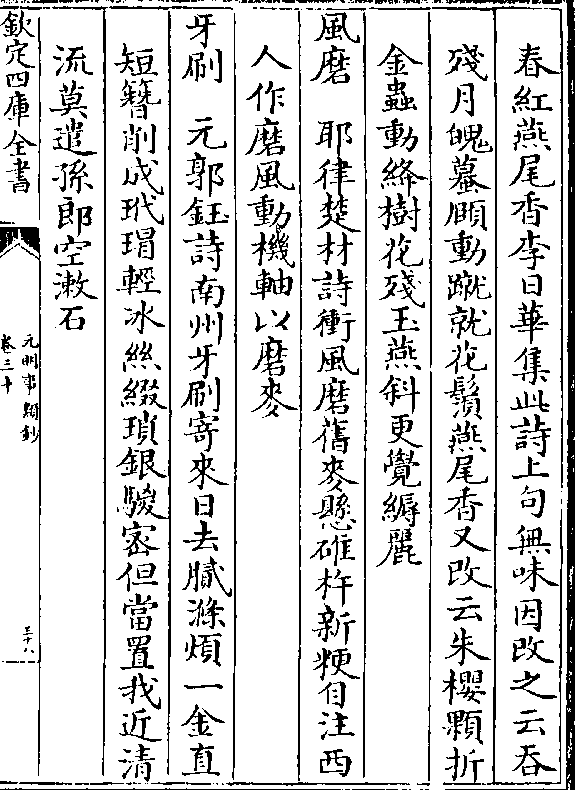 春紅燕尾香李日華集此詩上句無味因改之云吞
殘月魄蟇頤動蹴就花鬚燕尾香又改云朱櫻顆折
金蟲動絳樹花殘玉燕斜更覺縟麗
風磨　耶律楚材詩衝風磨舊麥懸碓杵新粳自注西
人作磨風動機軸以磨麥
牙刷　元郭鈺詩南州牙刷寄來日去膩滌煩一金直
短簪削成玳瑁輕冰絲綴瑣銀騣密但當置我近清
流莫遣孫郎空漱石
欽定四庫全書
元明事類鈔
卷三十
三十八